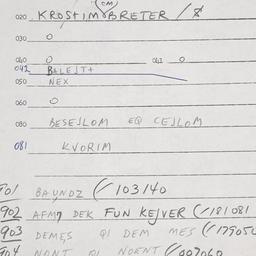 OM
020 KROSTIMOBRETER /
030 O
040 O 041 O
042 BALEJT+
050 NEX
060 O
080 BESEJLOM EQ CEJLOM
081 KVORIM
901 BAUNDZ (/103140
902 AFM7 DEK FUN KEJVER (/181081
903 DEMES QI DEM MES (/179050
904 NONT QI NOENT (/007060